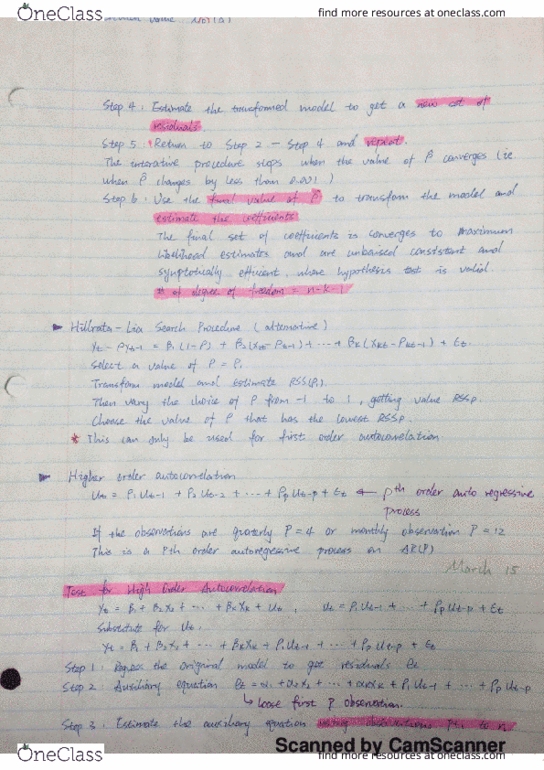 OneClass
find more resources at oneclass.com
Step 4: Estimate the transformed model to get a new set of
residuals.
Step 5: Return to Step 2 - Step 4 and repeat.
The interative procedure stops when the value of ρ̂ converges (ie
when ρ̂ changes by less than 0.001)
Step 6: Use the final value of ρ̂ to transform the model and
estimate the coefficients
The final set of coefficients is converges to maximum
likelihood estimates and are unbaised consistent and
symptotically efficient, where hypothesis test is valid.
# of degree of freedom = n-k-1
Hillrata-Liu Search Procedure (alternative)
Yt - ρYt-1 = β1(1-ρ) + β2(X2t - ρX2t-1) + ... + βk(Xkt - ρXkt-1) + εt.
Select a value of ρ = ρ1
Transform model and estimate RSS(ρ1).
Then vary the choice of ρ from -1 to 1, getting value RSSρ.
Choose the value of ρ that has the lowest RSSρ.
* This can only be used for first order autocorrelation
Higher order autocorrelation
Ut = ρ1Ut-1 + ρ2Ut-2 + ... + ρpUt-p + εt ← pth order auto regressive
process
If the observations are quarterly P = 4 or monthly observation P = 12
This is a Pth order autoregressive process on AR(P)
March 15
Test for High Order Autocorrelation
Yt = β1 + β2X2 + ... + βkXk + Ut, Ut = ρ1Ut-1 + ... + ρpUt-p + εt
Substitute for Ut.
Yt = β1 + β2X2 + ... + βkXk + ρ1Ut-1 + ... + ρpUt-p + εt
Step 1: Regress the original model to get residuals et
Step 2: Auxiliary equation et = α1 + α2X2 + ... + αkXk + ρ1Ut-1 + ... + ρpUt-p
↳ loose first p observation.
Step 3: Estimate the auxiliary equation using observations p+1 to n
Scanned by CamScanner
OneClass
find more resources at oneclass.com